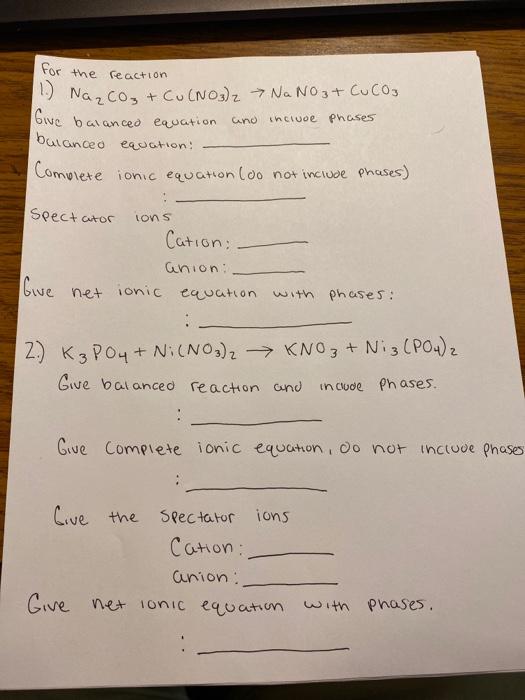 For the reaction
1.) Na₂CO₃ + Cu(NO₃)₂ → NaNO₃ + CuCO₃
Give balanced equation and include phases
balanced equation:
Complete ionic equation (do not include phases)
:
Spectator ions
Cation:
anion:
Give net ionic equation with phases:
:
2.) K₃PO₄ + Ni(NO₃)₂ → KNO₃ + Ni₃(PO₄)₂
Give balanced reaction and include phases.
:
Give Complete ionic equation, do not include phases
:
Give the Spectator ions
Cation:
anion:
Give net ionic equation with phases.
: